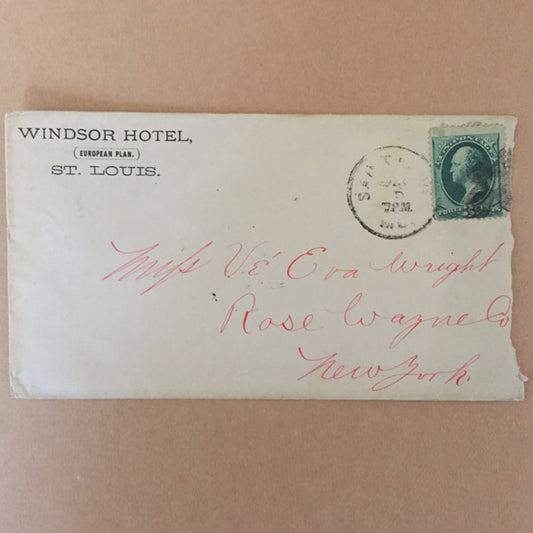 WINDSOR HOTEL,
(EUROPEAN PLAN.)
ST. LOUIS.
Miss Vè Eva Wright
Rose Wayne Co
New York.